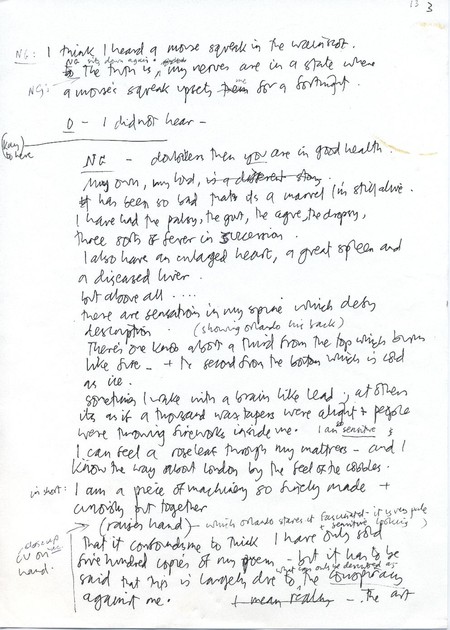 3
NG: I think I heard a mouse squeak in the wainscot.
NG sits down again
The truth is, my nerves are in a state where
NG:- a mouse's squeak upsets them me for a fortnight.
O - I did not hear -
NG - doubtless then you are in good health.
My own, my lord, is a different story.
It has been so bad that its a marvel I'm still alive.
I have had the palsy, the gout, the ague, the dropsy,
three sorts of fever in succession.
I also have an enlarged heart, a great spleen and
a diseased liver.
but above all ....
there are sensations in my spine which defy
description (showing orlando his back)
There's one knob about a third from the top which burns
like fire - + the second from the bottom which is cold
as ice.
sometimes I wake with a brain like lead; at others
its as if a thousand wax tapers were alight + people
were throwing fireworks inside me. I am so sensitive
I can feel a rose leaf through my mattress - and I
know the way about london by the feel of the cobbles.
in short: I am a piece of machinery so finely made +
curiously put together
(raises hand) - which orlando stares at fascinated - it is very
sensitive looking)
close up
CU on hand.
that it confounds me to think I have only sold
five hundred copies of my poem - but it has to be
what can only be described as
said that this is largely due to the conspiracy
against me.
I mean really - the art